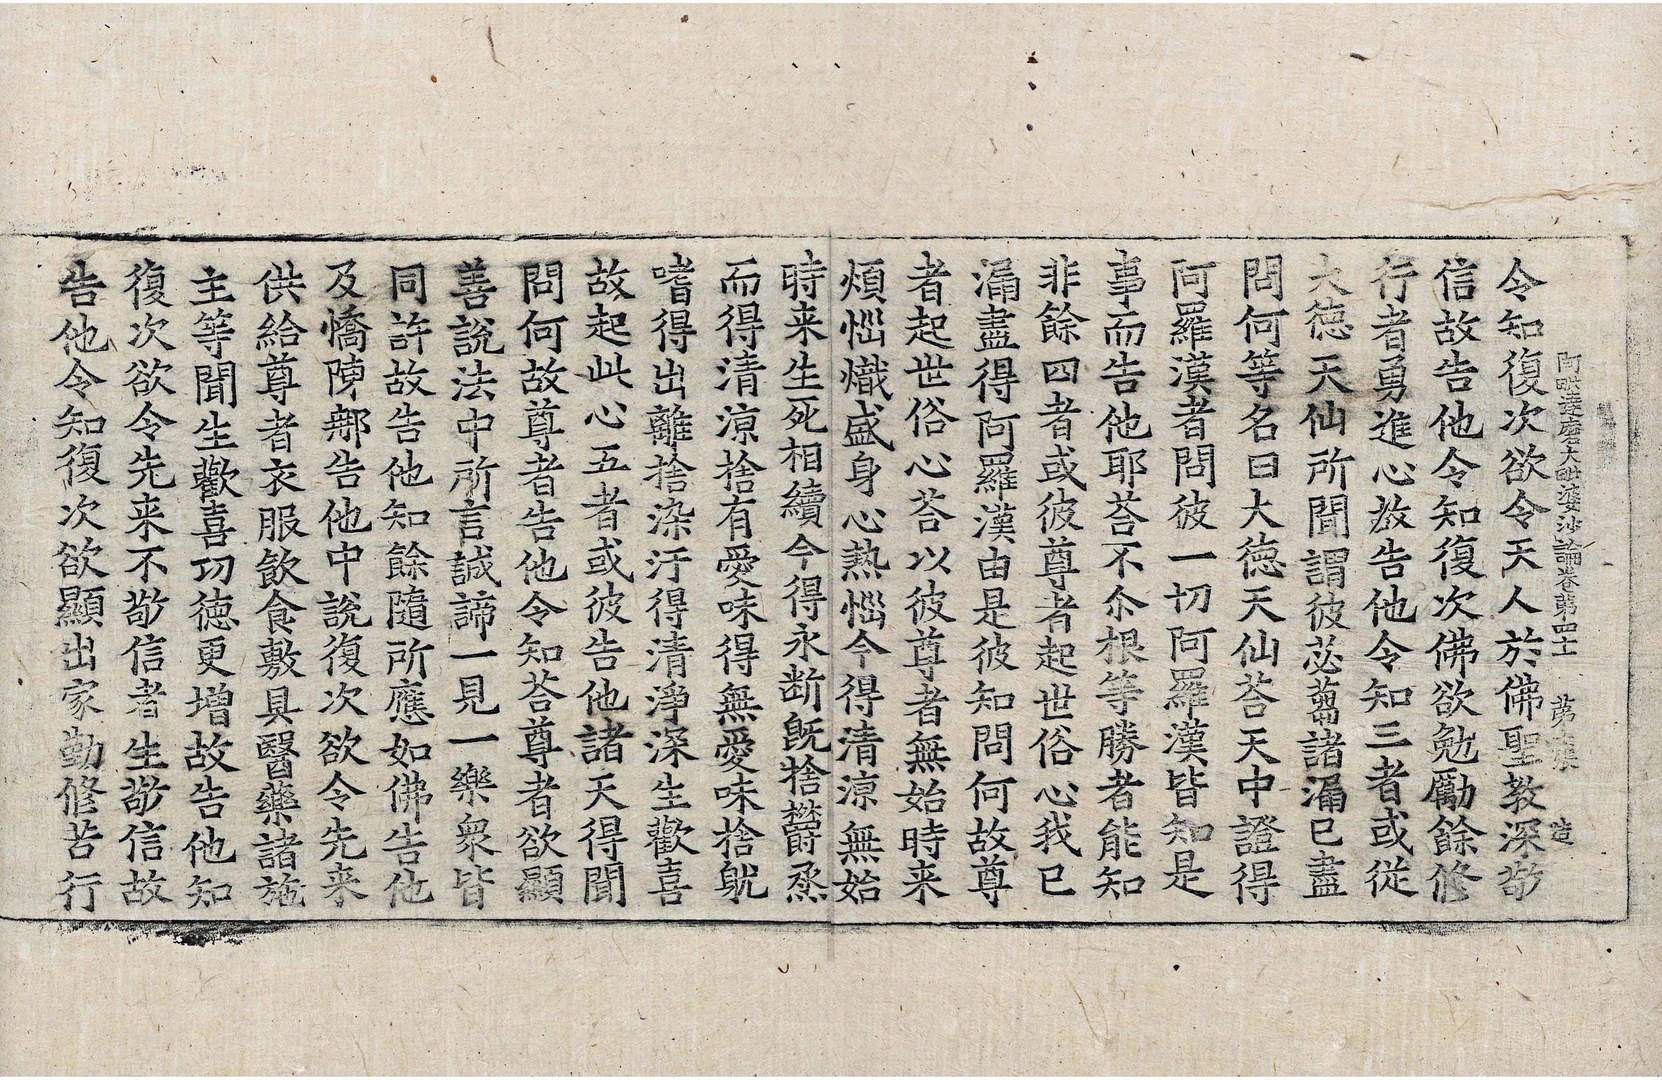 阿毗達磨大毗婆沙論卷第四十 第 張 造
令知復次欲令天人於佛聖教深敬
信故告他令知復次佛欲勉勵餘修
行者勇進心故告他令知三者或從
大徳天仙所聞謂彼苾蒭諸漏已盡
問何等名曰大徳天仙荅天中證得
阿羅漢者問彼一切阿羅漢皆知是
事而告他耶荅不尒根等勝者能知
非餘四者或彼尊者起世俗心我已
漏盡得阿羅漢由是彼知問何故尊
者起世俗心荅以彼尊者無始時来
煩惱熾盛身心熱惱今得清涼無始
時来生死相續今得永断旣捨欝烝
而得清涼捨有愛味得無愛味捨躭
嗜得出離捨染汙得清淨深生歡喜
故起此心五者或彼告他諸天得聞
問何故尊者告他令知荅尊者欲顯
善說法中所言誠諦一見一樂衆皆
同許故告他知餘隨所應如佛告他
及憍陳那告他中說復次欲令先来
供給尊者衣服飲食敷具醫藥諸施
主等聞生歡喜功徳更增故告他知
復次欲令先来不敬信者生敬信故
告他令知復次欲顯出家勤修苦行